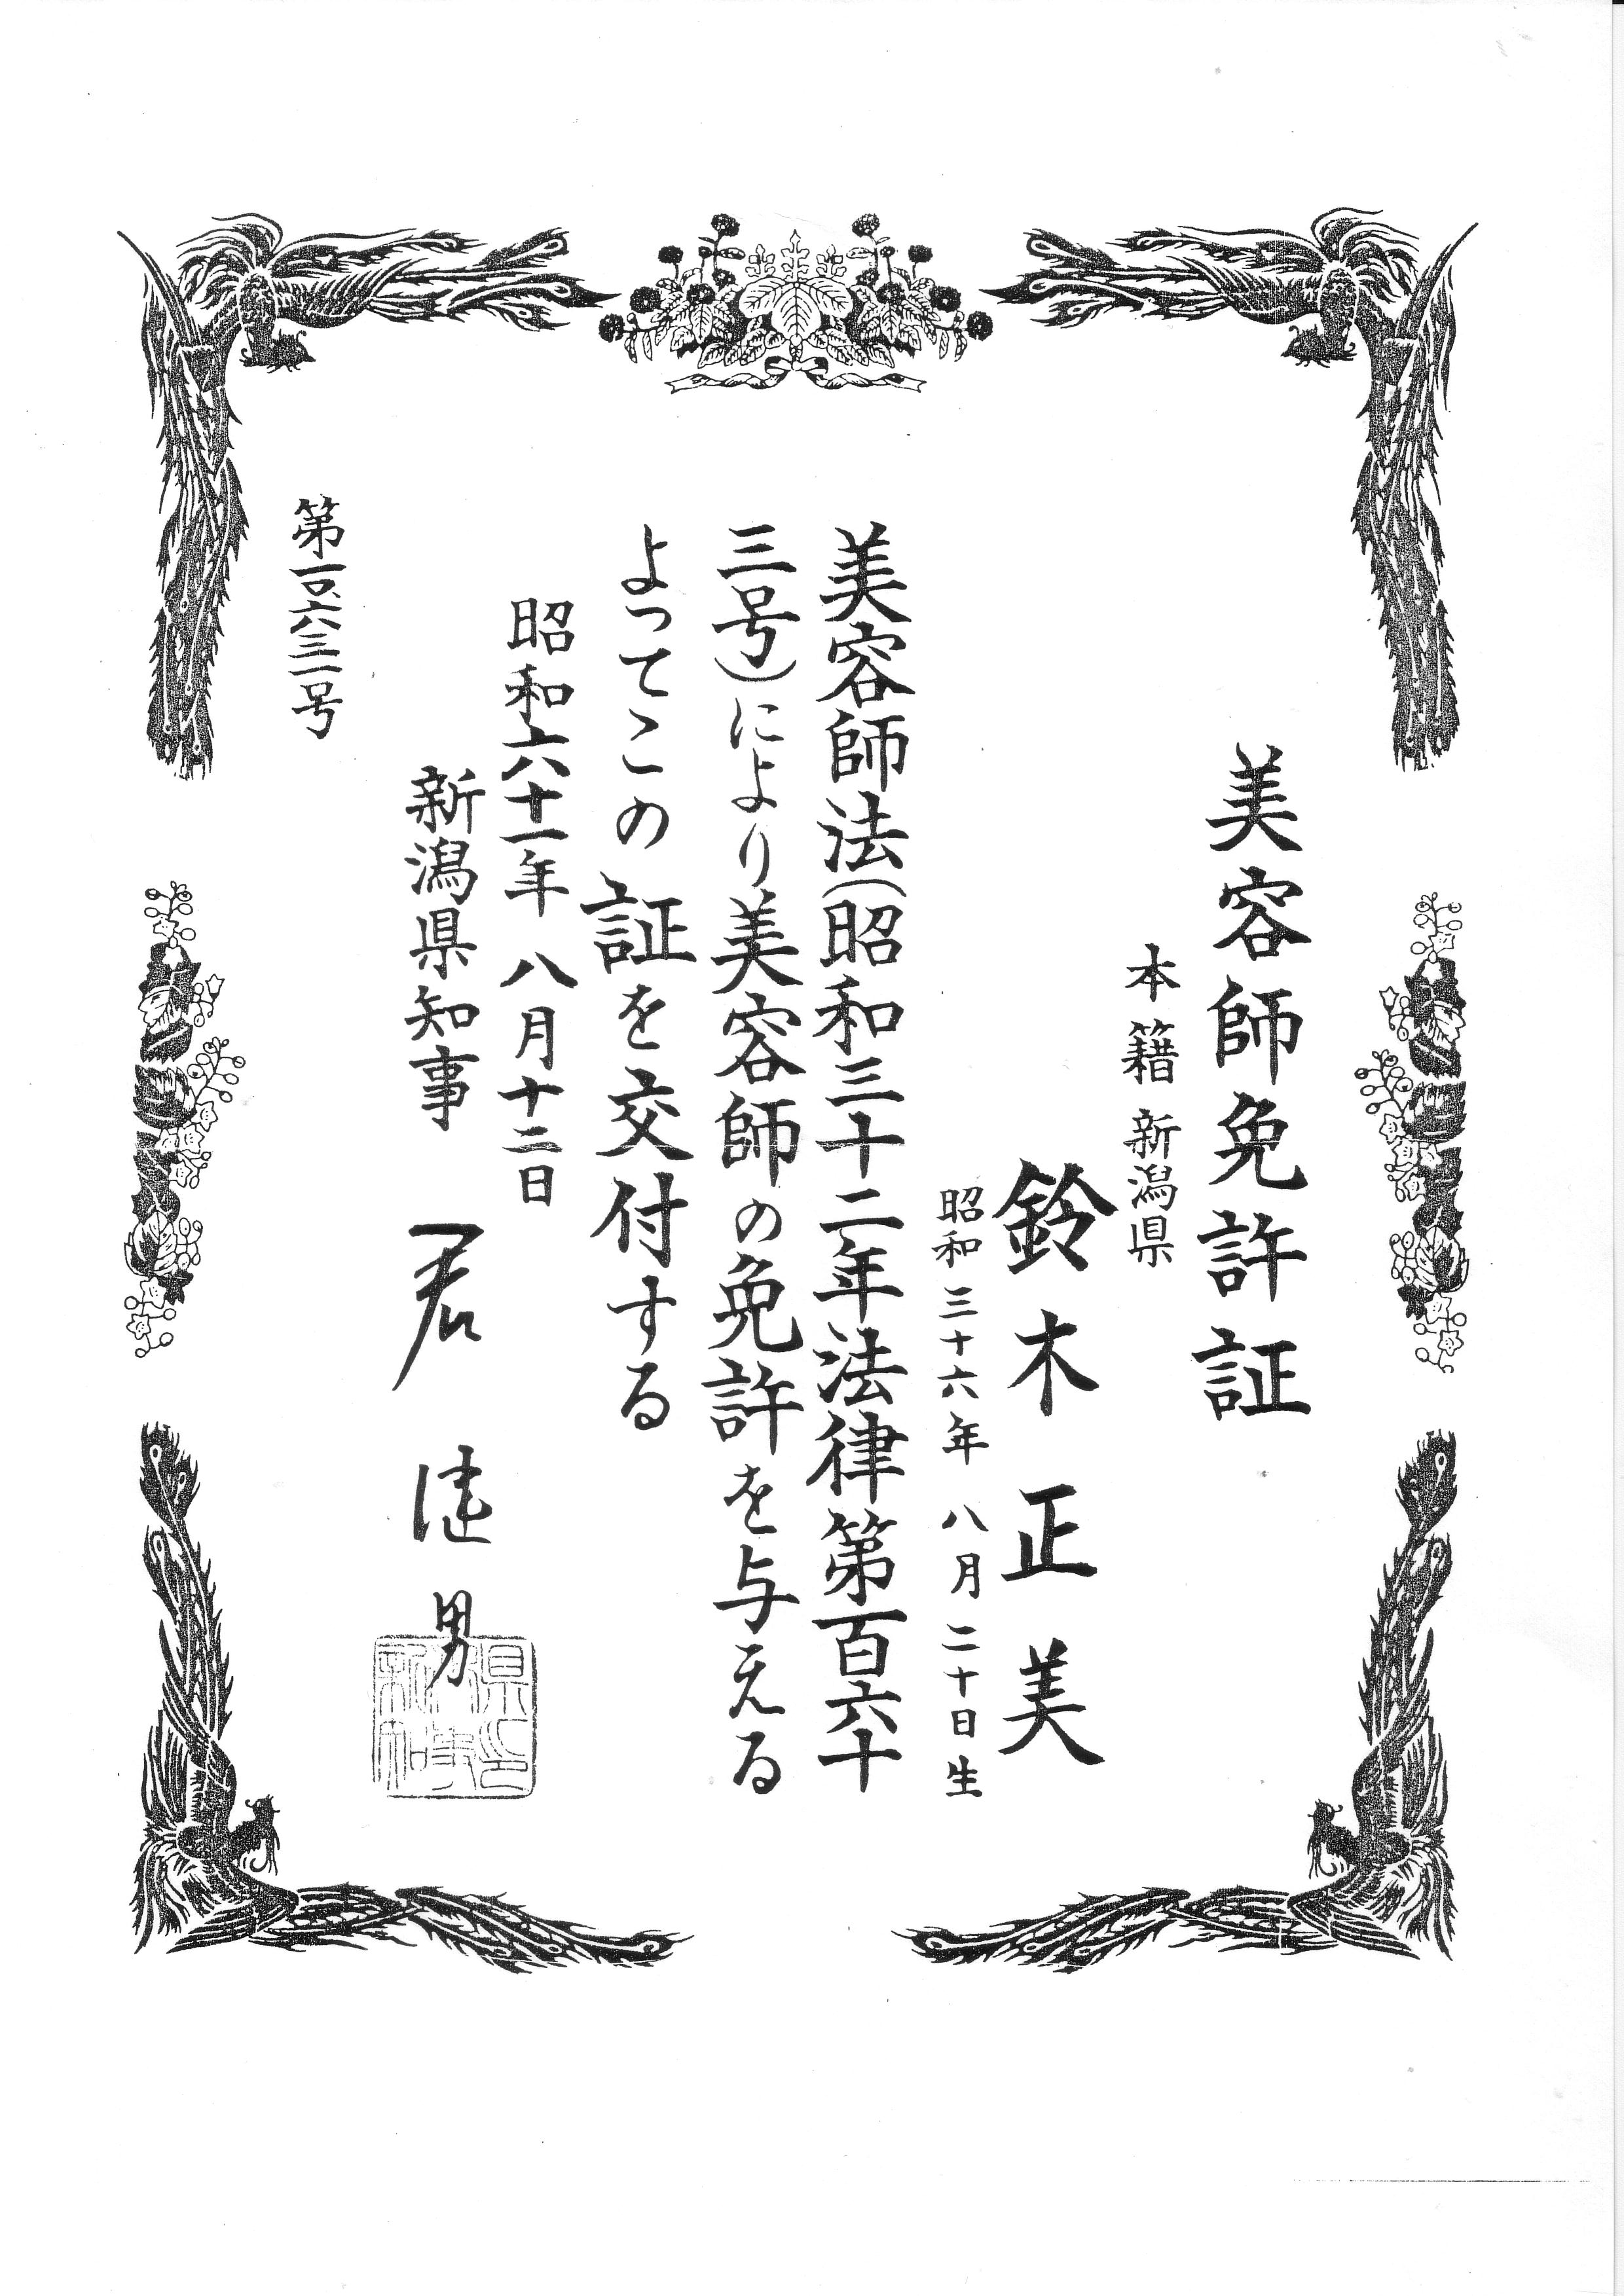 美容師免許証
本籍 新潟県
鈴木正美
昭和三十六年 八月二十日生
美容師法(昭和三十二年法律第百六十
三号)により美容師の免許を与える
よってこの証を交付する
昭和六十一年 八月十二日
新潟県知事 君健男
第一〇、六三一号